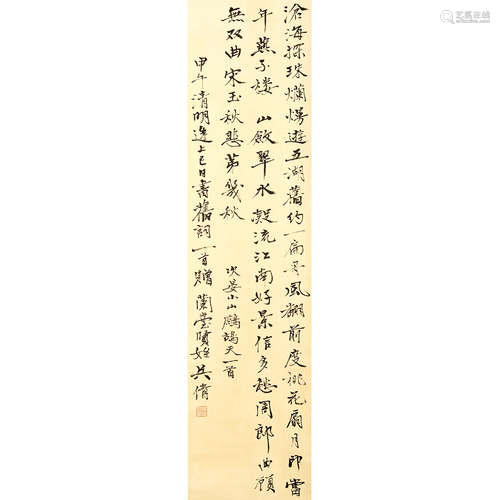 滄海探珠爛熳遊五湖舊約一扁舟風翻前度桃花扇月印當
年燕子樓 山斂翠水凝流江南好景信多愁周郎曲顧
無双曲宋玉秋悲第幾秋
次晏小山鷓鴣天一首
甲午清明逢上巳日書舊詞一首贈蘭臺賢姪吴倩
艺狐在线